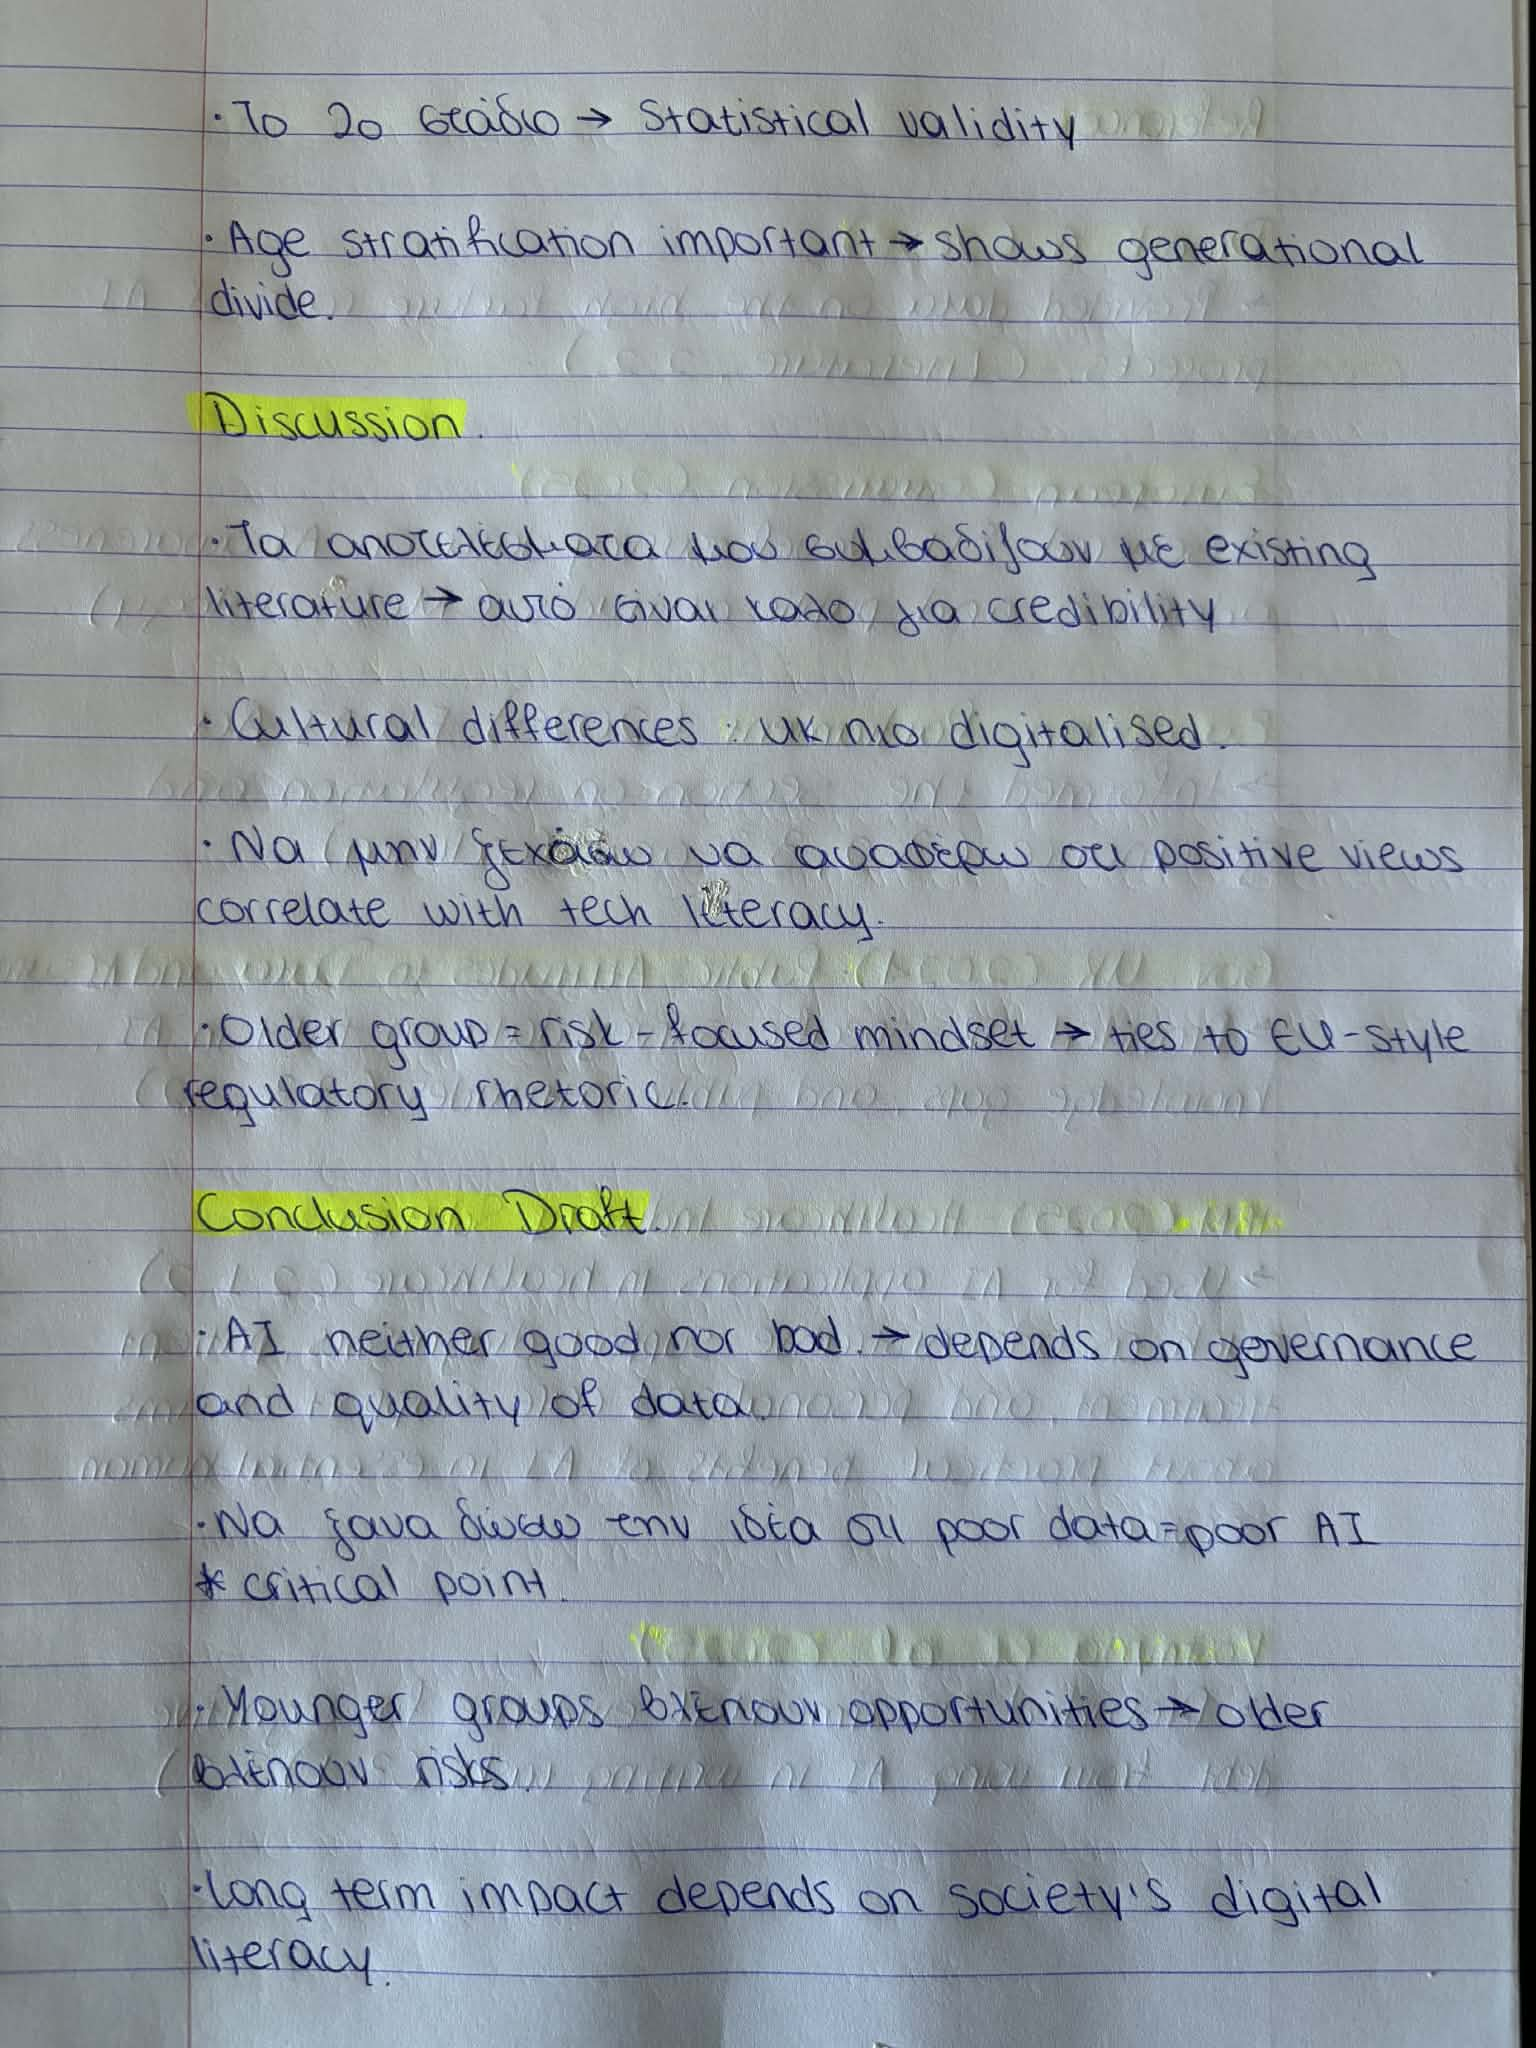 · Το 2ο στάδιο → Statistical validity
· Age stratification important → shows generational
divide.
Discussion.
· Τα αποτελέσματα μου συμβαδίζουν με existing
literature → αυτό είναι καλο για credibility
· Cultural differences : UK πιο digitalised.
· Να μην ξεχάσω να αναφέρω οτι positive views
correlate with tech literacy.
· Older group = risk-focused mindset → ties to EU-style
regulatory rhetoric.
Conclusion Draft.
· AI neither good nor bad. → depends on governance
and quality of data.
· Να ξανα δώσω την ιδέα οτι poor data = poor AI
* critical point.
· Younger groups βλέπουν opportunities → older
βλέπουν risks.
· Long term impact depends on society's digital
literacy.